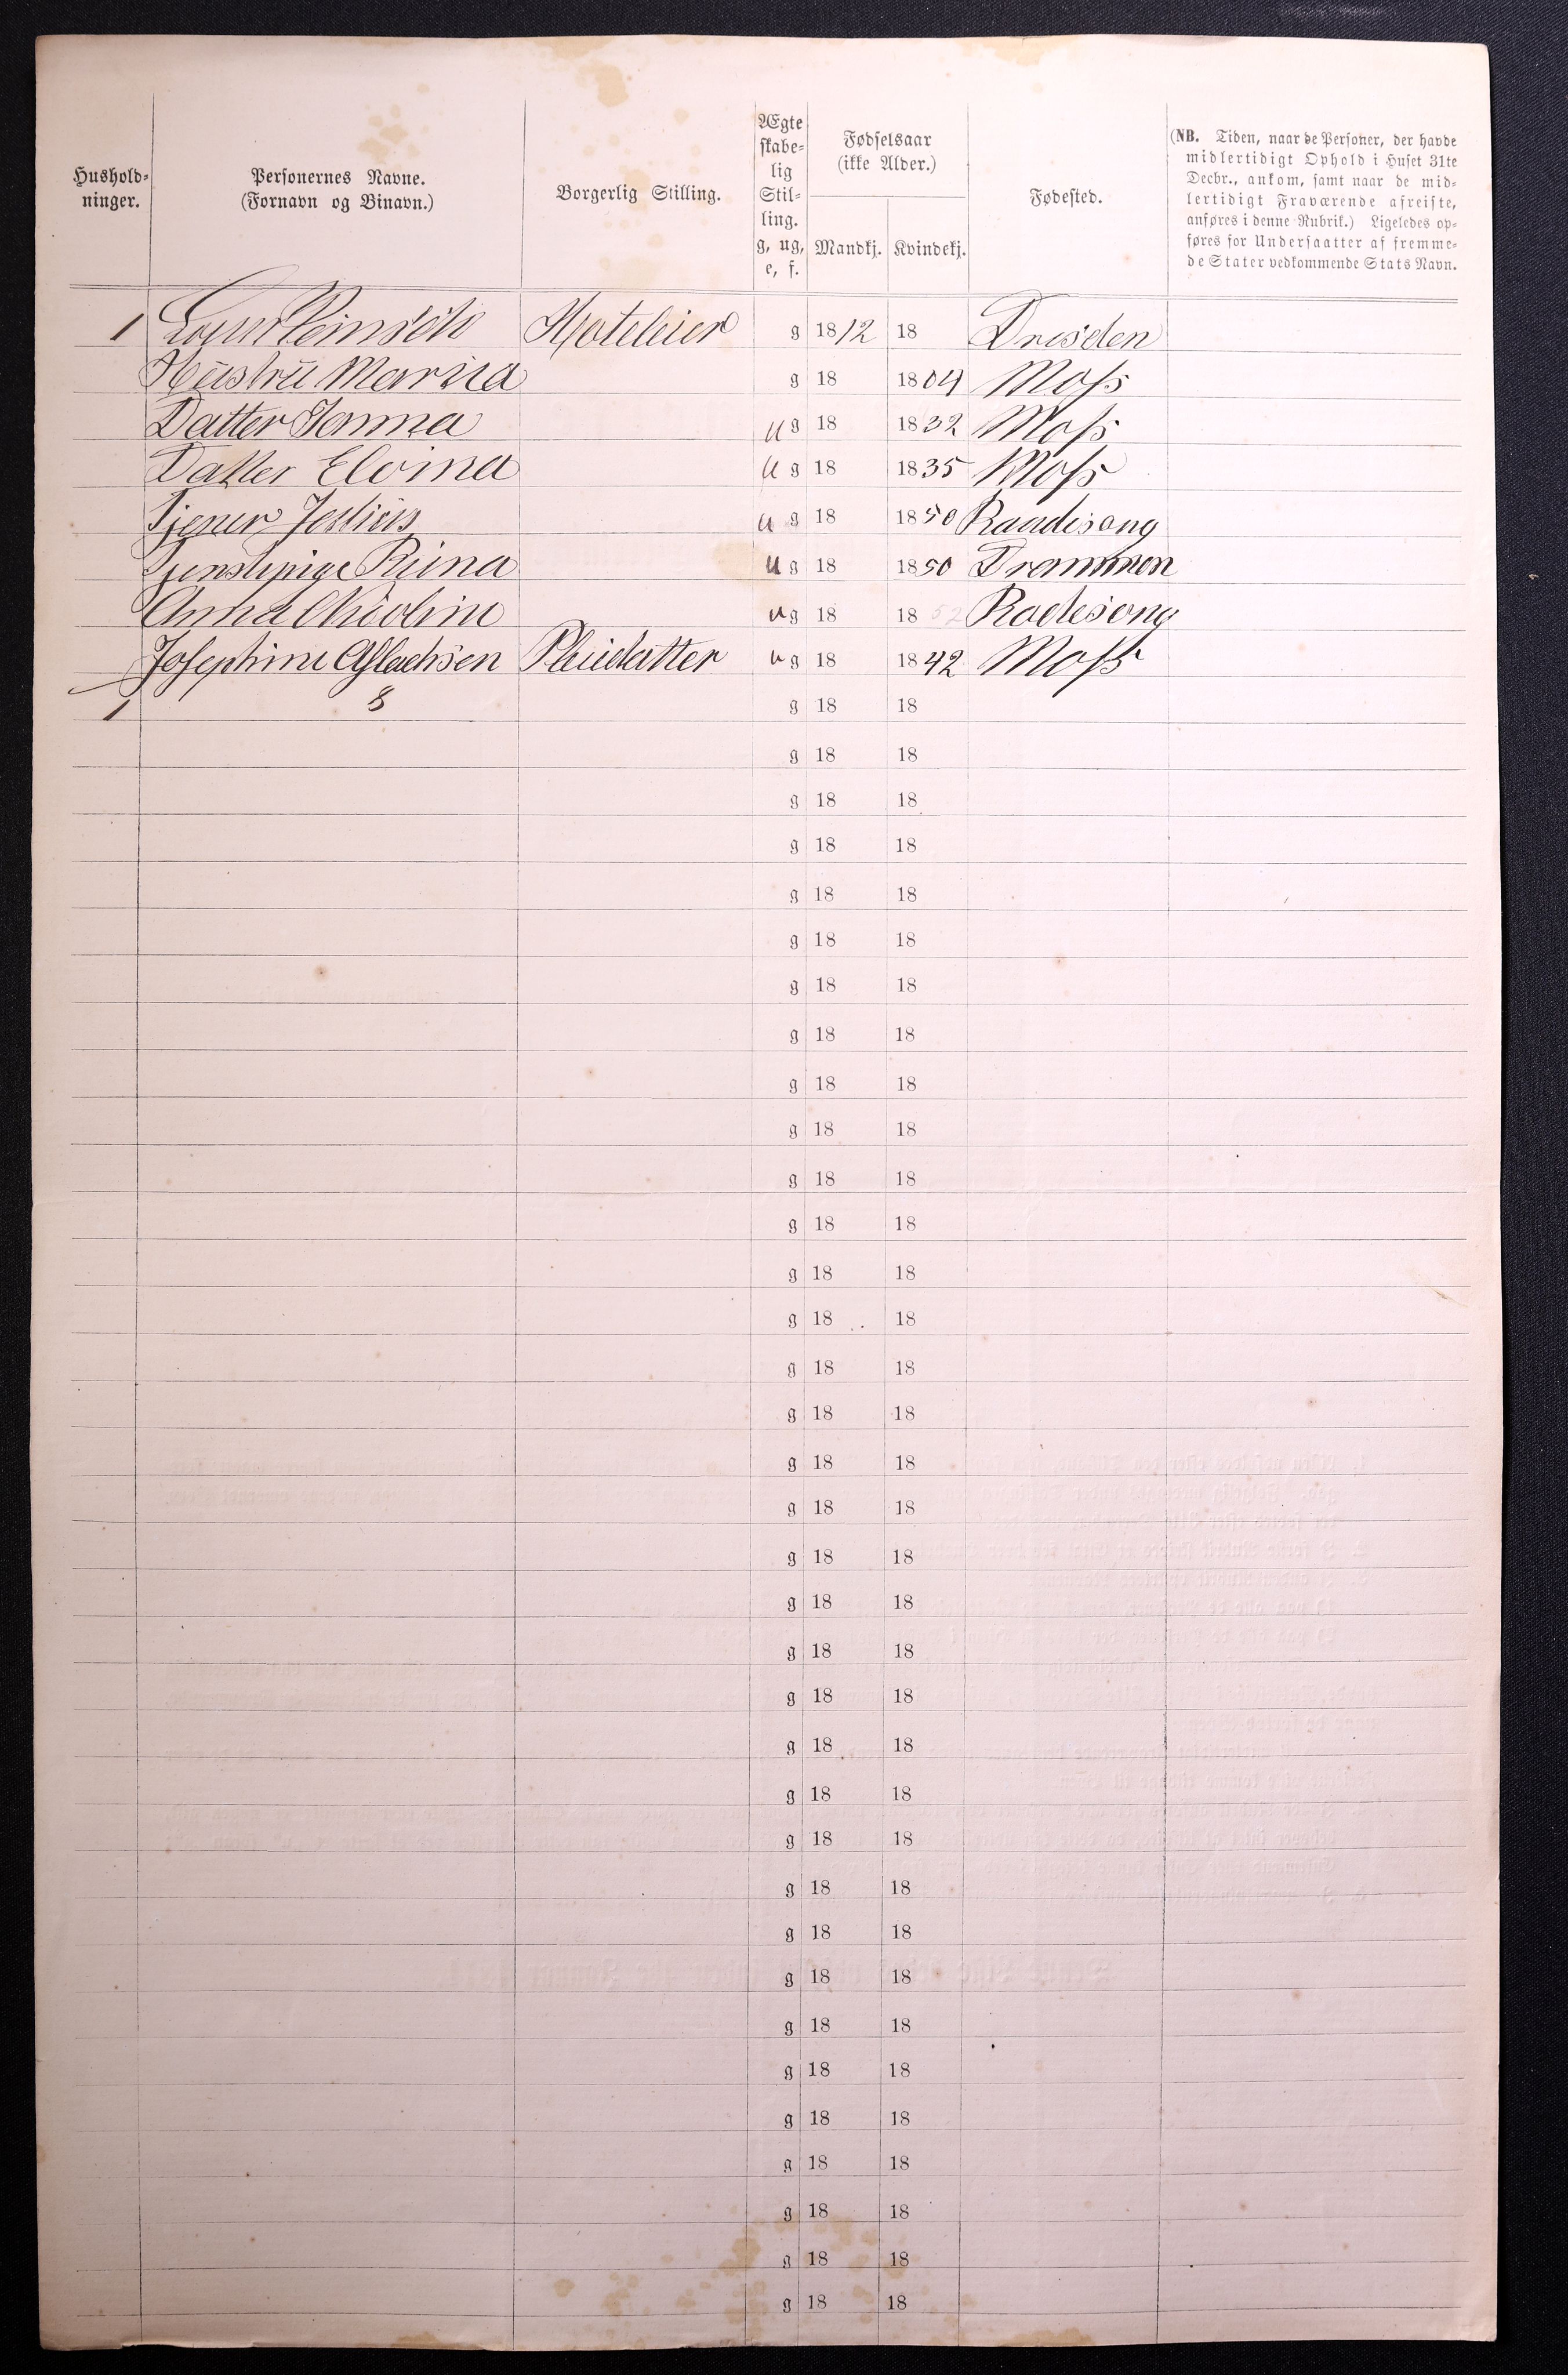 Hushold-
ninger.
Personernes Navne.
(Fornavn og Binavn.)
Borgerlig Stilling.
Ægte
skabe-
lig
Stil-
ling.
g, ug,
e, f.
Fødselsaar
(ikke Alder.)
Mandkj.
Kvindekj.
Fødested.
(NB. Tiden, naar de Personer, der havde
midlertidigt Ophold i Huset 31te
Decbr., ankom, samt naar de mid-
lertidigt Fraværende afreiste,
anføres i denne Rubrik.) Ligeledes op-
føres for Undersaatter af fremme-
de Stater vedkommende Stats Navn.
1 Hoteleier g 1812 18 Dresden
Hustru Marxia g 18 1804 Moss
Datter Jonna ug 18 1832 Moss
Datter Elvina ug 18 1835 Moss
ug 18 1850
Rina ug 18 1850 Drammen
Anna ug 18 1852
Josephine Aslachsen Pleiedatter ug 18 1842 Moss
1 8 g 18 18
g 18 18
g 18 18
g 18 18
g 18 18
g 18 18
g 18 18
g 18 18
g 18 18
g 18 18
g 18 18
g 18 18
g 18 18
g 18 18
g 18 18
g 18 18
g 18 18
g 18 18
g 18 18
g 18 18
g 18 18
g 18 18
g 18 18
g 18 18
g 18 18
g 18 18
g 18 18
g 18 18
g 18 18
g 18 18
g 18 18
g 18 18
g 18 18
g 18 18
g 18 18